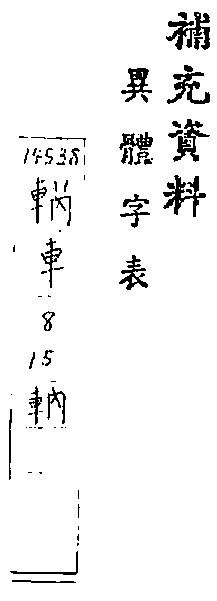 補充資料
異體字表
14538
車
8
15
軜